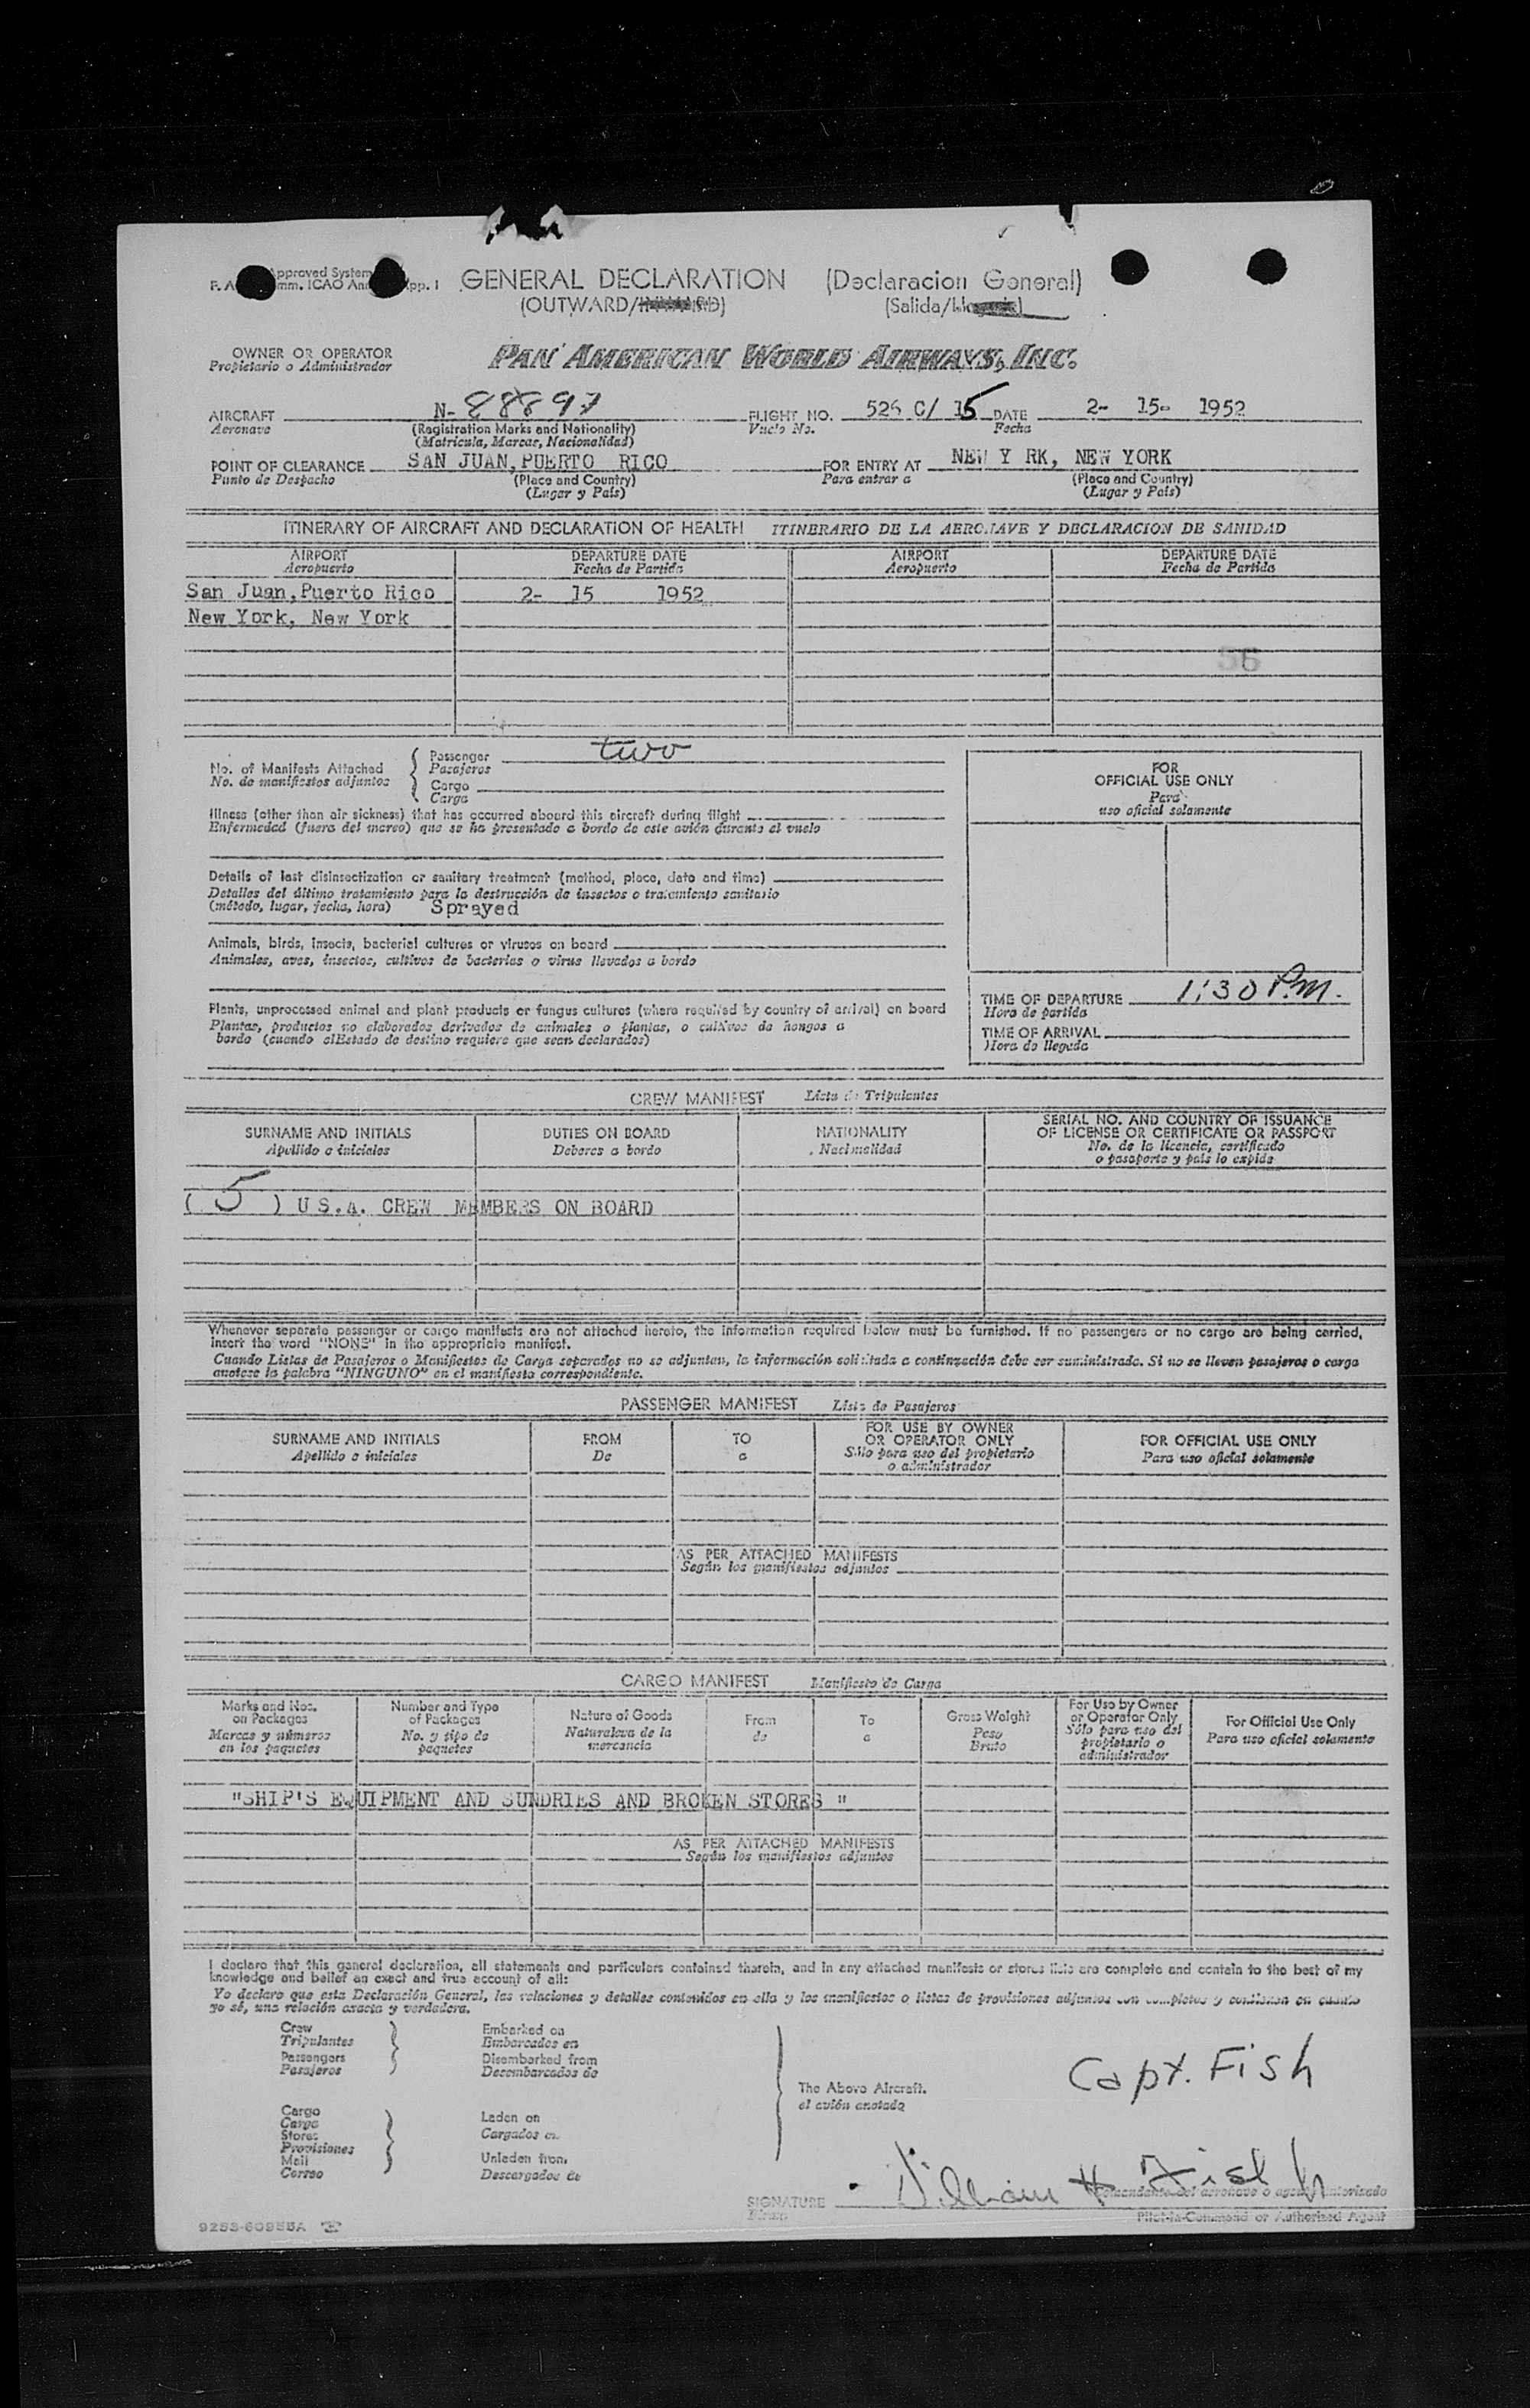 GENERAL DECLARATION (Declaracion General)
(OUTWARD/
(Salida/
OWNER OR OPERATOR
Propietario o Administrador
PAN AMERICAN WORLD AIRWAYS, INC.
AIRCRAFT N-88897 FLIGHT NO. 526 C/ 15 DATE 2- 15- 1952
Aeronave (Registration Marks and Nationality) Vuelo No. Fecha
(Matricula, Marcas, Nacionalidad)
POINT OF CLEARANCE SAN JUAN, PUERTO RICO FOR ENTRY AT NEW Y RK, NEW YORK
Punto de Despacho (Place and Country) Para entrar a (Place and Country)
(Lugar y País) (Lugar y País)
ITINERARY OF AIRCRAFT AND DECLARATION OF HEALTH ITINERARIO DE LA AERONAVE Y DECLARACION DE SANIDAD
AIRPORT DEPARTURE DATE AIRPORT DEPARTURE DATE
Aeropuerto Fecha de Partida Aeropuerto Fecha de Partida
San Juan, Puerto Rico 2- 15 1952
New York, New York
56
No. of Manifests Attached Passenger two
No. de manifiestos adjuntos Pasajeros
Cargo
Carga
Illness (other than air sickness) that has occurred aboard this aircraft during flight
Enfermedad (fuera del mareo) que se ha presentado a bordo de este avión durante el vuelo
Details of last disinsectization or sanitary treatment (method, place, date and time)
Detalles del último tratamiento para la destrucción de insectos o tratamiento sanitario
(método, lugar, fecha, hora) Sprayed
Animals, birds, insects, bacterial cultures or viruses on board
Animales, aves, insectos, cultivos de bacterias o virus llevados a bordo
Plants, unprocessed animal and plant products or fungus cultures (where required by country of arrival) on board
Plantas, productos no elaborados derivados de animales o plantas, o cultivos de hongos a
bordo (cuando elEstado de destino requiere que sean declarados)
FOR
OFFICIAL USE ONLY
Para
uso oficial solamente
TIME OF DEPARTURE 1:30 P.M.
Hora de partida
TIME OF ARRIVAL
Hora de llegada
CREW MANIFEST Lista de Tripulantes
SURNAME AND INITIALS DUTIES ON BOARD NATIONALITY SERIAL NO. AND COUNTRY OF ISSUANCE
OF LICENSE OR CERTIFICATE OR PASSPORT
Apellido e iniciales Deberes a bordo Nacionalidad No. de la licencia, certificado
o pasaporte y país lo expide
( 5 ) U S.A. CREW MEMBERS ON BOARD
Whenever separate passenger or cargo manifests are not attached hereto, the information required below must be furnished. If no passengers or no cargo are being carried,
insert the word "NONE" in the appropriate manifest.
Cuando Listas de Pasajeros o Manifiestos de Carga separados no se adjuntan, la información solicitada a continuación debe ser suministrada. Si no se lleven pasajeros o carga
anotese la palabra "NINGUNO" en el manifiesto correspondiente.
PASSENGER MANIFEST Lista de Pasajeros
SURNAME AND INITIALS FROM TO FOR USE BY OWNER
OR OPERATOR ONLY FOR OFFICIAL USE ONLY
Apellido e iniciales De a Sólo para uso del propietario
o administrador Para uso oficial solamente
AS PER ATTACHED MANIFESTS
Según los manifiestos adjuntos
CARGO MANIFEST Manifiesto de Carga
Marks and Nos.
on Packages
Marcas y números
en los paquetes
Number and Type
of Packages
No. y tipo de
paquetes
Nature of Goods
Naturaleva de la
mercancia
From
de
To
a
Gross Weight
Peso
Bruto
For Use by Owner
or Operator Only
Sólo para uso del
propietario o
administrador
For Official Use Only
Para uso oficial solamente
"SHIP'S EQUIPMENT AND SUNDRIES AND BROKEN STORES "
AS PER ATTACHED MANIFESTS
Según los manifiestos adjuntos
I declare that this general declaration, all statements and particulars contained therein, and in any attached manifests or stores lists are complete and contain to the best of my
knowledge and belief an exact and true account of all:
Yo declaro que esta Declaración General, las relaciones y detalles contenidos en ella y los manifiestos o listas de provisiones adjuntos son completos y contienen en cuanto
yo sé, una relación exacta y verdadera.
Crew Embarked on
Tripulantes Embarcados en
Passengers Disembarked from
Pasajeros Desembarcados de
The Above Aircraft.
el avión anotado
Capt. Fish
Cargo
Carga Laden on
Stores Cargados en
Provisiones
Mail Unladen from
Correo Descargados de
SIGNATURE William H Fish
Firma
Comandante del aeronave o agente autorizado
Pilot-in-Command or Authorized Agent